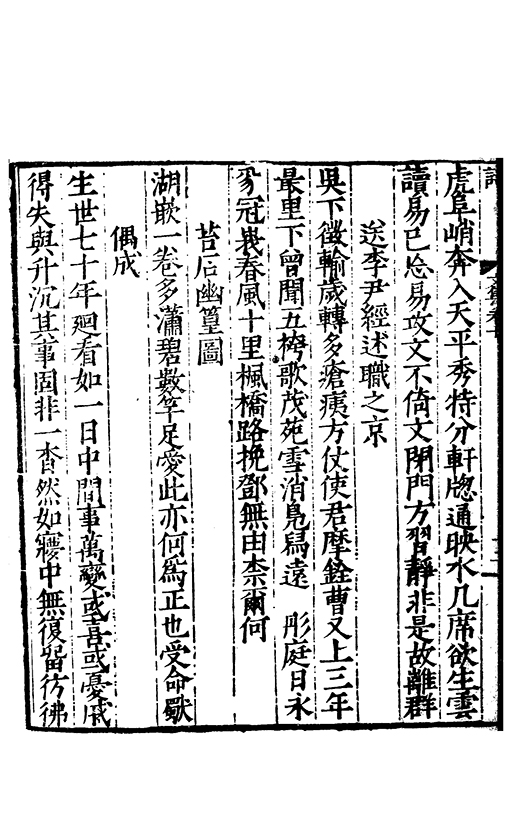 虎阜峭奔入天平秀特分軒牕通映水几席欲生雲
讀易已忘易攻文不倚文閉門方習靜非是故離群
送李尹經述職之京
吳下徵輸歲轉多瘡痍方仗使君摩銓曹又上三年
最里下曾聞五袴歌茂苑雪消鳬舄遠 彤庭日永
豸冠峩春風十里楓橋路挽鄧無由柰爾何
苔石幽篁圖
湖嵌一卷多瀟碧數竿足愛此亦何為正也受命獨
偶成
生世七十年廻看如一日中間事萬變或喜或憂戚
得失與升沉其事固非一杳然如寱中無復留彷彿